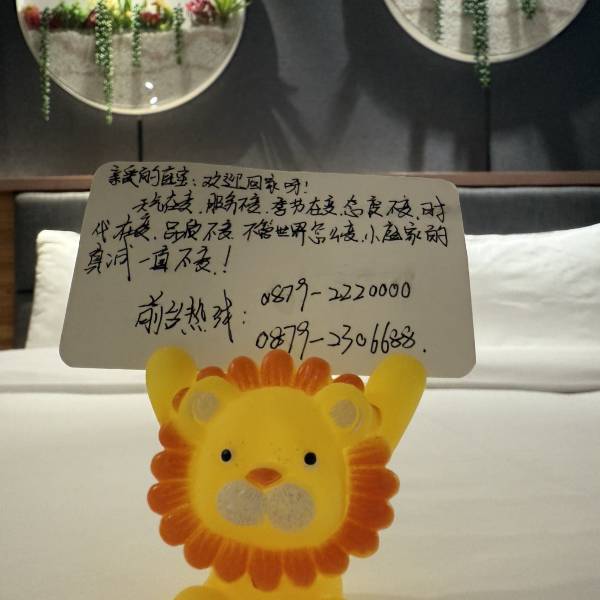 亲爱的宾客：欢迎回家呀！
天气在变，服务不变，季节在变，态度不变，时
代在变，品质不变，不管世界怎么变，小庭家的
真诚一直不变！
前台热线：0879-2220000
0879-2306688.